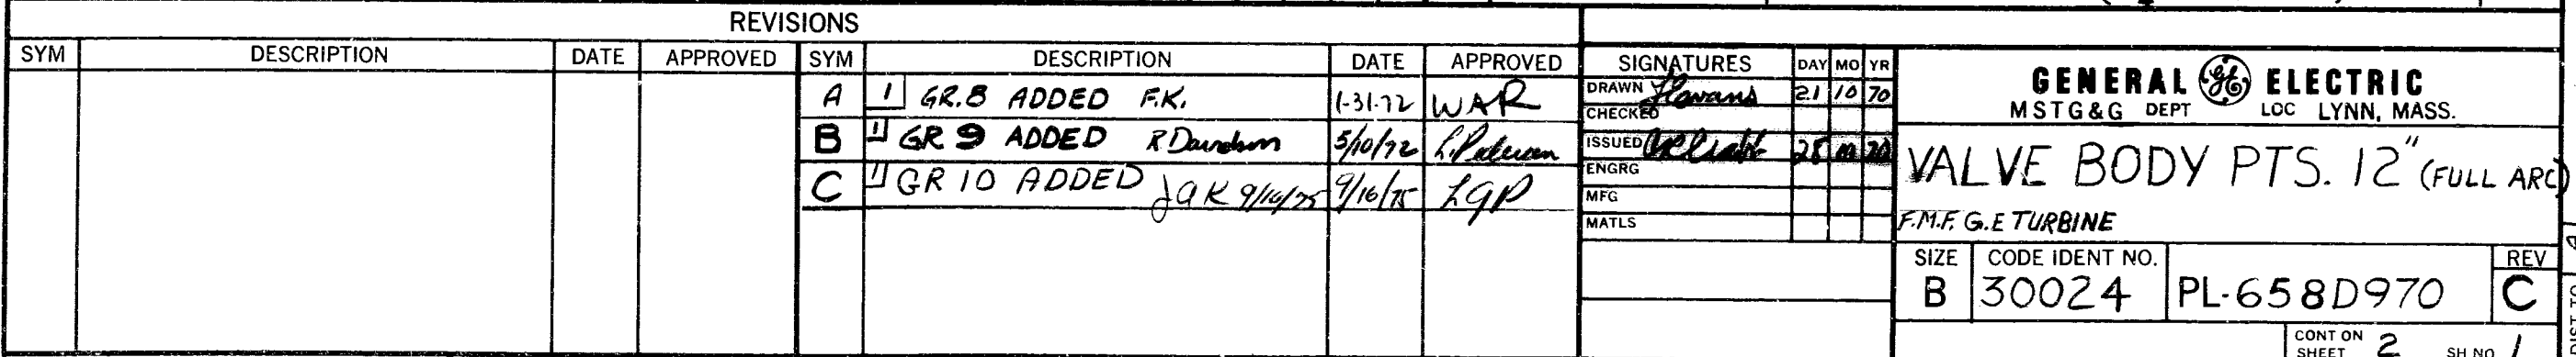 REVISIONS
SYM DESCRIPTION DATE APPROVED SYM DESCRIPTION DATE APPROVED
A 1 GR.8 ADDED F.K. 1-31-72 WAR
B 1 GR 9 ADDED R Davidson 5/10/72
C 1 GR 10 ADDED JAK 9/16/75 9/16/75 LGP
SIGNATURES DAY MO YR
DRAWN 21 10 70
CHECKED
ISSUED 28
ENGRG
MFG
MATLS
GENERAL GE ELECTRIC
MSTG&G DEPT LOC LYNN, MASS.
VALVE BODY PTS. 12" (FULL ARC)
F.M.F. G.E TURBINE
SIZE CODE IDENT NO. REV
B 30024 PL-658D970 C
CONT ON SHEET 2 SH NO 1